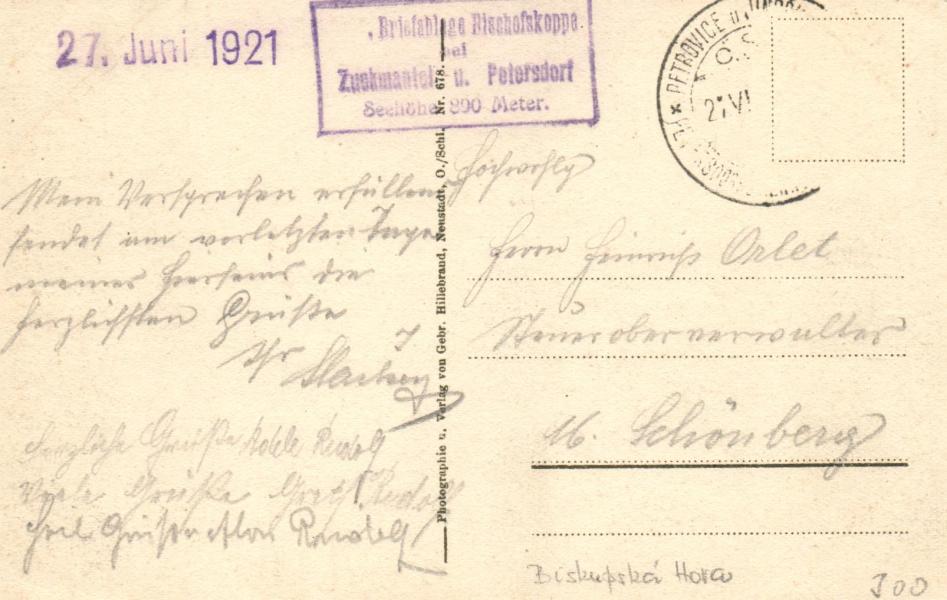 27. Juni 1921
Briefablage Bischofskoppe.
bei
Zuckmantel u. Petersdorf
Seehöhe 890 Meter.
PETROVICE U
Č.S
27 VI
Mein Versprechen erfüllend
sendet am vorletzten Tage
meines Hierseins die
herzlichsten Grüße
Ihr
Herzliche Grüße Adele Rudolf
Viele Grüße Gretl Rudolf
Heil Rudolf
Photographie u. Verlag von Gebr. Hillebrand, Neustadt, O./Schl. Nr. 678.
Herrn Heinrich Orlet
Steueroberverwalter
M. Schönberg
Biskupská Hora
300